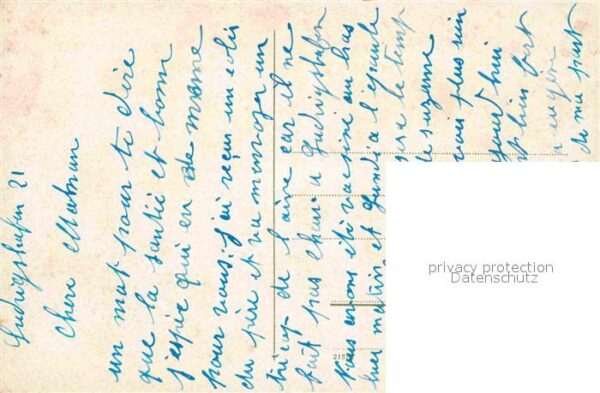 Ludwigshafen 21
Chere Maman
un mot pour te dire
que la santé et bonne
j'espère qui en de meme
pour vous. j'ai reçus un colis
du père et va m'envoyer un
tricop de laine car il ne
fait pas chau a Ludwigshafen
Nous avons étè vacciné au bas
hier matin et Lundi a l'épaule
le temp
de suzanne
vais plus rien
jourd'hui
bien fort
de ma part
privacy protection
Datenschutz